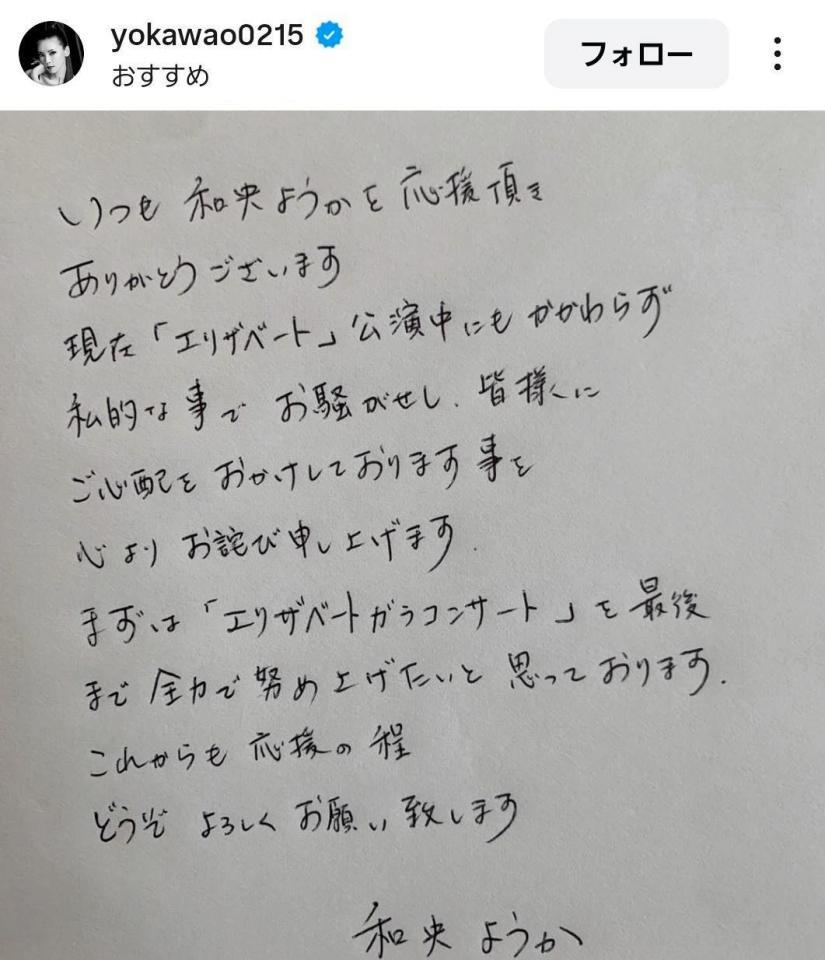 yokawao0215
おすすめ
フォロー
いつも 和央ようかを応援頂き
ありがとうございます
現在「エリザベート」公演中にもかかわらず
私的な事で お騒がせし、皆様に
ご心配を おかけしております事を
心より お詫び申し上げます.
まずは「エリザベートガラコンサート」を最後
まで 全力で 努め上げたいと 思っております.
これからも 応援の程
どうぞ よろしく お願い致します
和央ようか